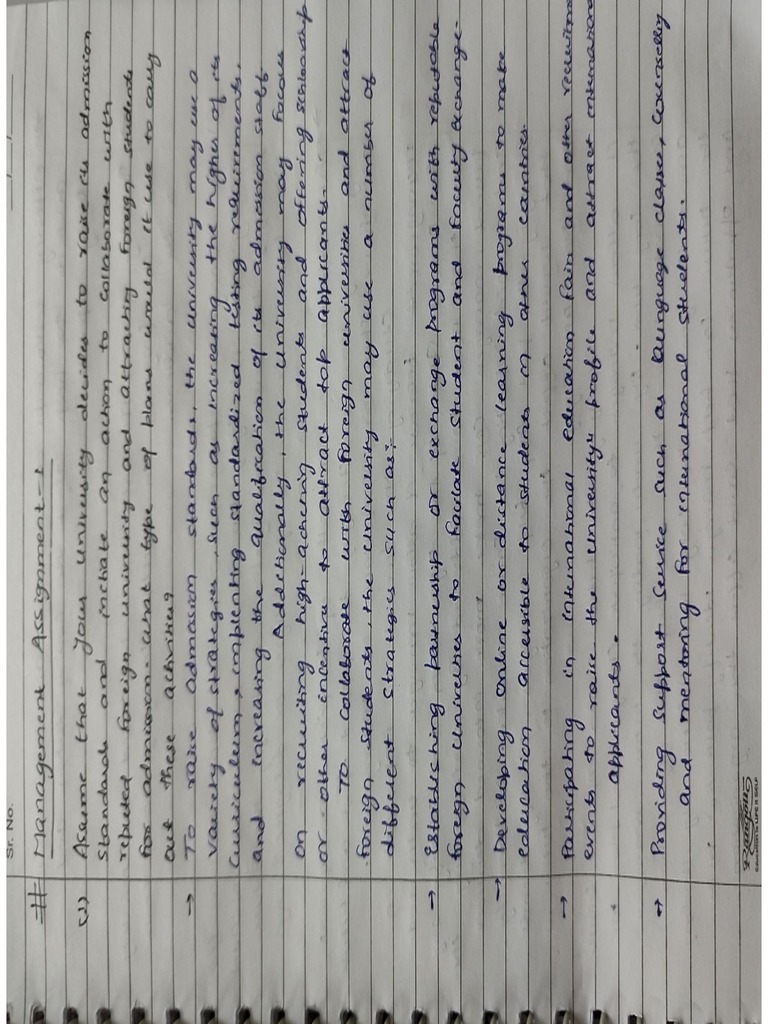 Sr. No.
# Management Assignment-1
(1) Assume that your university decides to raise its admission
standards and initiate an action to collaborate with
reputed foreign university and attracting foreign students
for admission. what type of plans would it use to carry
out these activities?
→ To raise admission standards, the university may use a
variety of strategies, such as increasing the higher of its
curriculum, implenting standardized testing requirements,
and increasing the qualification of its admission staff.
Additionally, the university may focus
on recruiting high-achieving students and offering scholarship
or other incentive to attract top applicants.
To collaborate with foreign universities and attract
foreign students, the university may use a number of
different strategies such as:
→ Establishing partnership or exchange programs with reputable
foreign universites to faciliate student and faculty exchange.
→ Developing online or distance learning programs to make
education accessible to students in other countries.
→ Participating in international education fairs and other recruitment
events to raise the university's profile and attract international
applicants.
→ Providing support service such as language classes, counselling
and mentoring for international students.